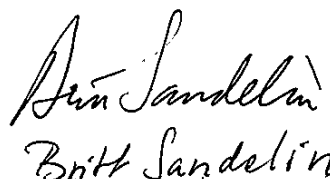 Sandelin
Britt Sandelin